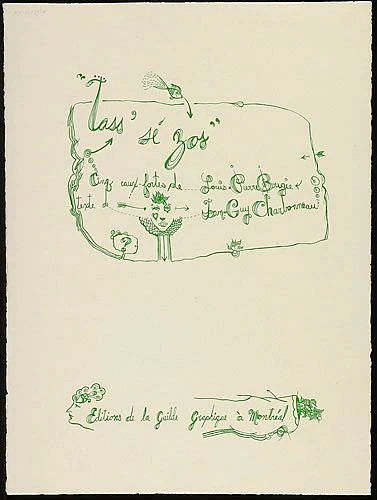 "Tass' sé zos"
Cinq eaux-fortes de Louis-Pierre Bougie &
texte de Jean-Guy Charbonneau
Editions de la Guilde Graphique à Montréal